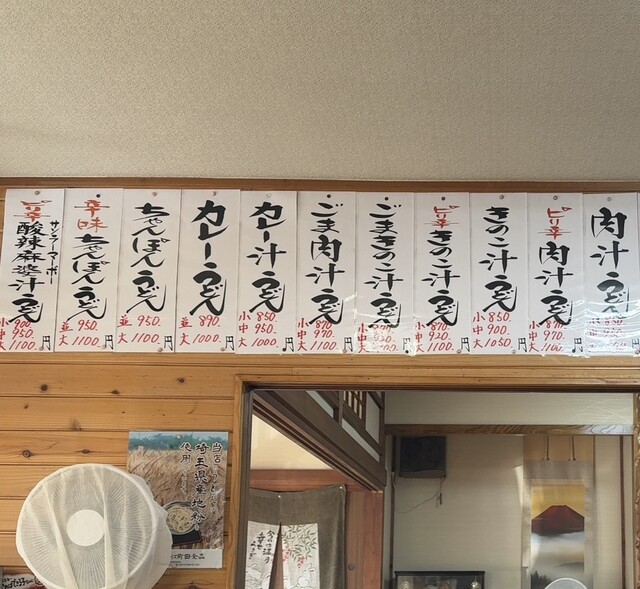 肉汁うどん
ピリ辛
肉汁うどん
小 870.
中 970.
大 1100.
円
きのこ汁うどん
小 850.
中 900.
大 1050.
円
ピリ辛
きのこ汁うどん
小 870.
中 920.
大 1100.
円
ごまきのこ汁うどん
円
ごま肉汁うどん
小 870.
中 970.
大 1100.
円
カレー汁うどん
小 850.
中 950.
大 1000.
円
カレーうどん
並 890.
大 1000.
円
ちゃんぽんうどん
並 950.
大 1100.
円
辛味
ちゃんぽんうどん
並 950.
大 1100.
円
ピリ辛
サンラーマーボー
酸辣麻婆汁うどん
小 900.
中 950.
大 1100.
円
埼玉県産地粉
使用